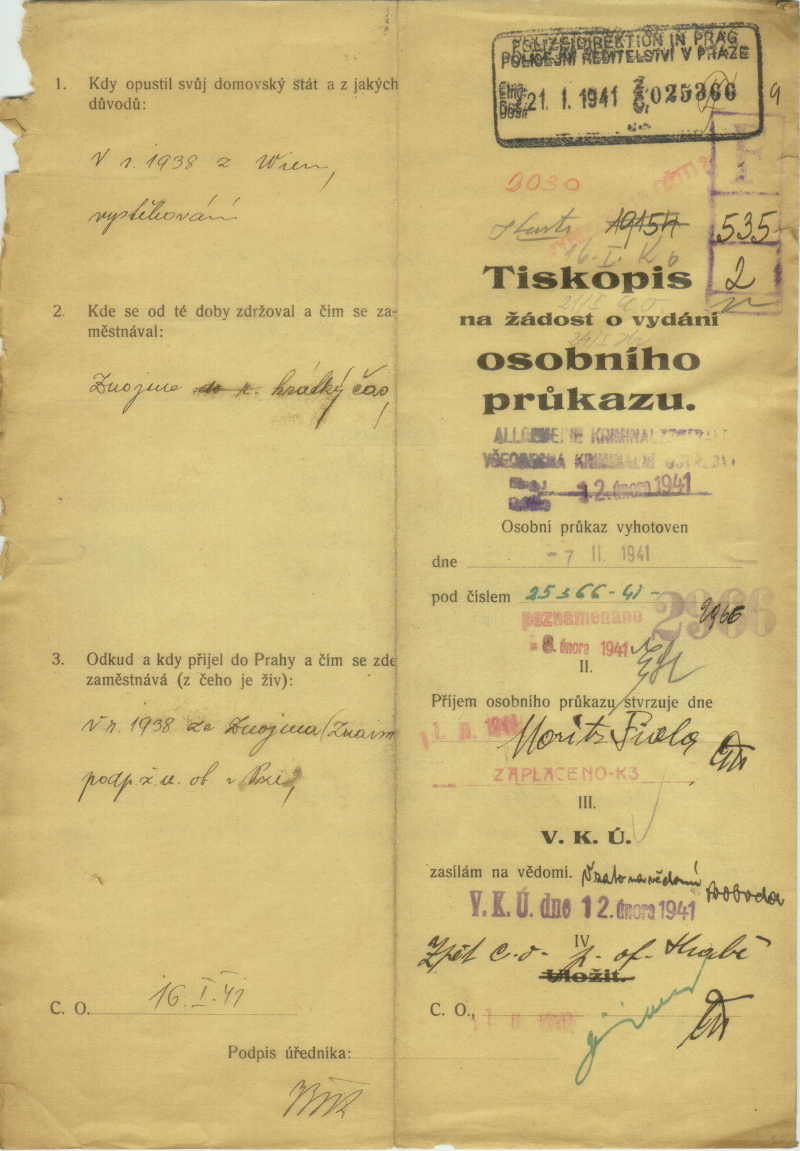 1. Kdy opustil svůj domovský stát a z jakých
důvodů:
V r. 1938 z Wien,
vystěhování
2. Kde se od té doby zdržoval a čím se za-
městnával:
Znojmo krátký čas,
3. Odkud a kdy přijel do Prahy a čím se zde
zaměstnává (z čeho je živ):
V r. 1938 ze Znojma (Znaim
podp. ž. u. ob v
C. O. 16. I. 41
Podpis úředníka:
POLIZEIDIREKTION IN PRAG
POLICEJNÍ ŘEDITELSTVÍ V PRAZE
21. 1. 1941 025366
9
9030
19154
535
16. I.
2
Tiskopis
na žádost o vydání
osobního
průkazu.
ALLGEMEINE KRIMINAL
VŠEOBECNÁ KRIMINÁLNÍ ÚSTŘEDNA
12. února 1941
Osobní průkaz vyhotoven
dne - 7 II. 1941
pod číslem 25366-41-
2966
2966
poznamenáno
- 8. února 1941
II.
Příjem osobního průkazu stvrzuje dne
Moritz
ZAPLACENO-K3
III.
V. K. Ú.
zasílám na vědomí. Vzato na vědomí
Svoboda
V. K. Ú. dne 12. února 1941
IV
Zpět c. o.
Uložit.
C. O.,